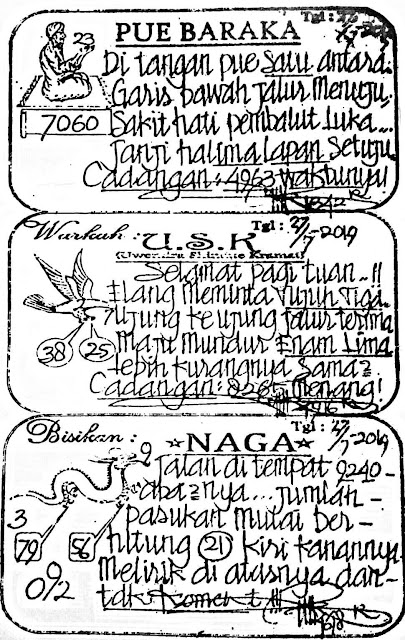 Tgl : 27/7-2019
PUE BARAKA
23
7060
Di tangan pue satu antara.
Garis bawah jalur menuju,
Sakit hati pembalut luka...
Janji halima lapan setuju
Cadangan : 4963 waktunya!
Warkah :
Tgl : 27/7-2019
U.S.K
Selamat pagi tuan..!!
Elang meminta tujuh tiga.
Ujung ke ujung jalur terima
Maju mundur Enam Lima
lebih kurangnya sama2
38 25
Cadangan : 8265 menang!
Bisikan :
Tgl : 27/7-2019
NAGA
9
Jalan di tempat 9240-
apa2nya... jumlah-
pasukan mulai ber-
hitung 21 kiri kanannya
Melirik di atasnya dan-
3
79 56
092